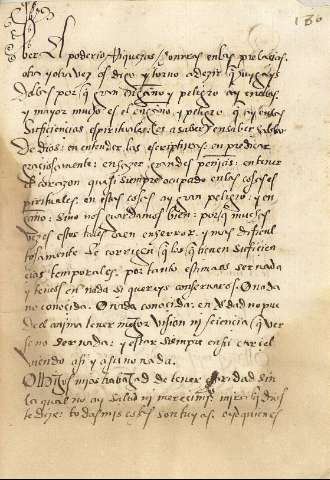 180
ber. El poderio Riquezas honras en las prelacias.
otra y otra vez os digo y torno a dezir q̃ huyays
dellas por q̃ gran engaño y peligro ay en ellas
y mayor mucho es el engaño y peligro q̃ ay en las
suficiencias espirituales: es a saber en saber hablar
de Dios: en entender las escripturas: en predicar
graciosamente: en hazer grandes peñias: en tener
el coraçon quasi siempre ocupado en las cosas es
pirituales. en estas cosas ay gran peligro: y en
gaño: si no se guardamos bien: por q̃ muchas
vezes estos tales caen en error. y mas dificul
tosamente se corrigen q̃ los q̃ tienen suficien
cias temporales. por tanto estimaos ser nada
y teneos en nada si quereys conservaros. O nada
no conocida. O nada conocida: en verdad no pue
de el anima tener mejor vision ni sciencia q̃ ver
se no ser nada: y estar siempre en su carcel
viendo asi y a su no nada.
O hijos mios trabajad de tener charidad sin
la qual no ay salud ni merecimiº: mira q̃ dios
te dize: todas mis cosas son tuyas. o q̃ quien es